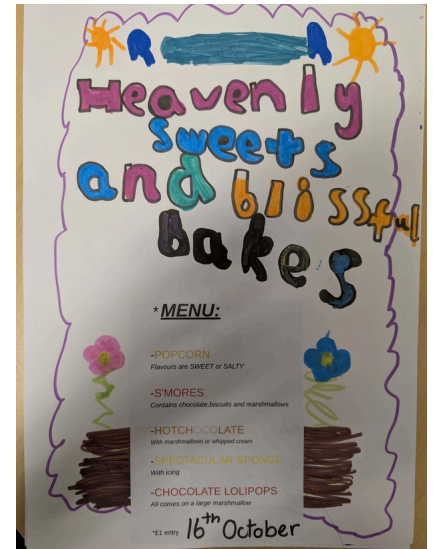 Heavenly
sweets
and blissful
bakes
*MENU:
-POPCORN
Flavours are SWEET or SALTY
-S'MORES
Contains chocolate,biscuits and marshmallows
-HOTCHOCOLATE
With marshmallows or whipped cream
-SPECTACULAR SPONGE
With icing
-CHOCOLATE LOLIPOPS
All comes on a large marshmallow
*£1 entry 16th October